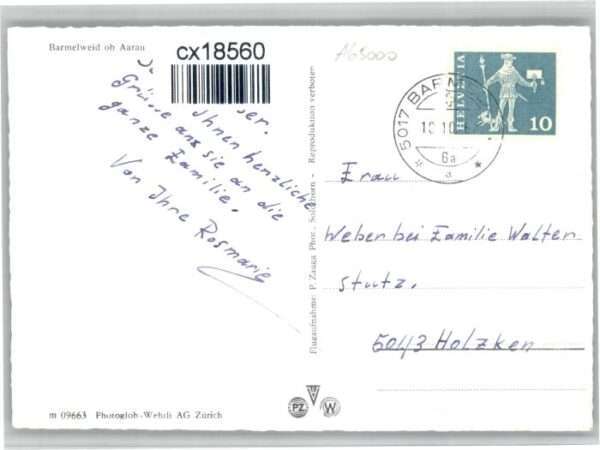 Barmelweid ob Aarau
cx18560
A65000
HELVETIA
10
5017 BARM
10.10.
6a
a
Ihnen herzliche
Grüsse aus sie an die
ganze Familie.
Von Ihre Rosmarie
Flugaufnahme: P. Zaugg Phot. Solothurn - Reproduktion verboten
Frau
Weber bei Familie Walter
Stutz.
5043 Holzken
PZ
W
m 09663 Photoglob-Wehrli AG Zürich